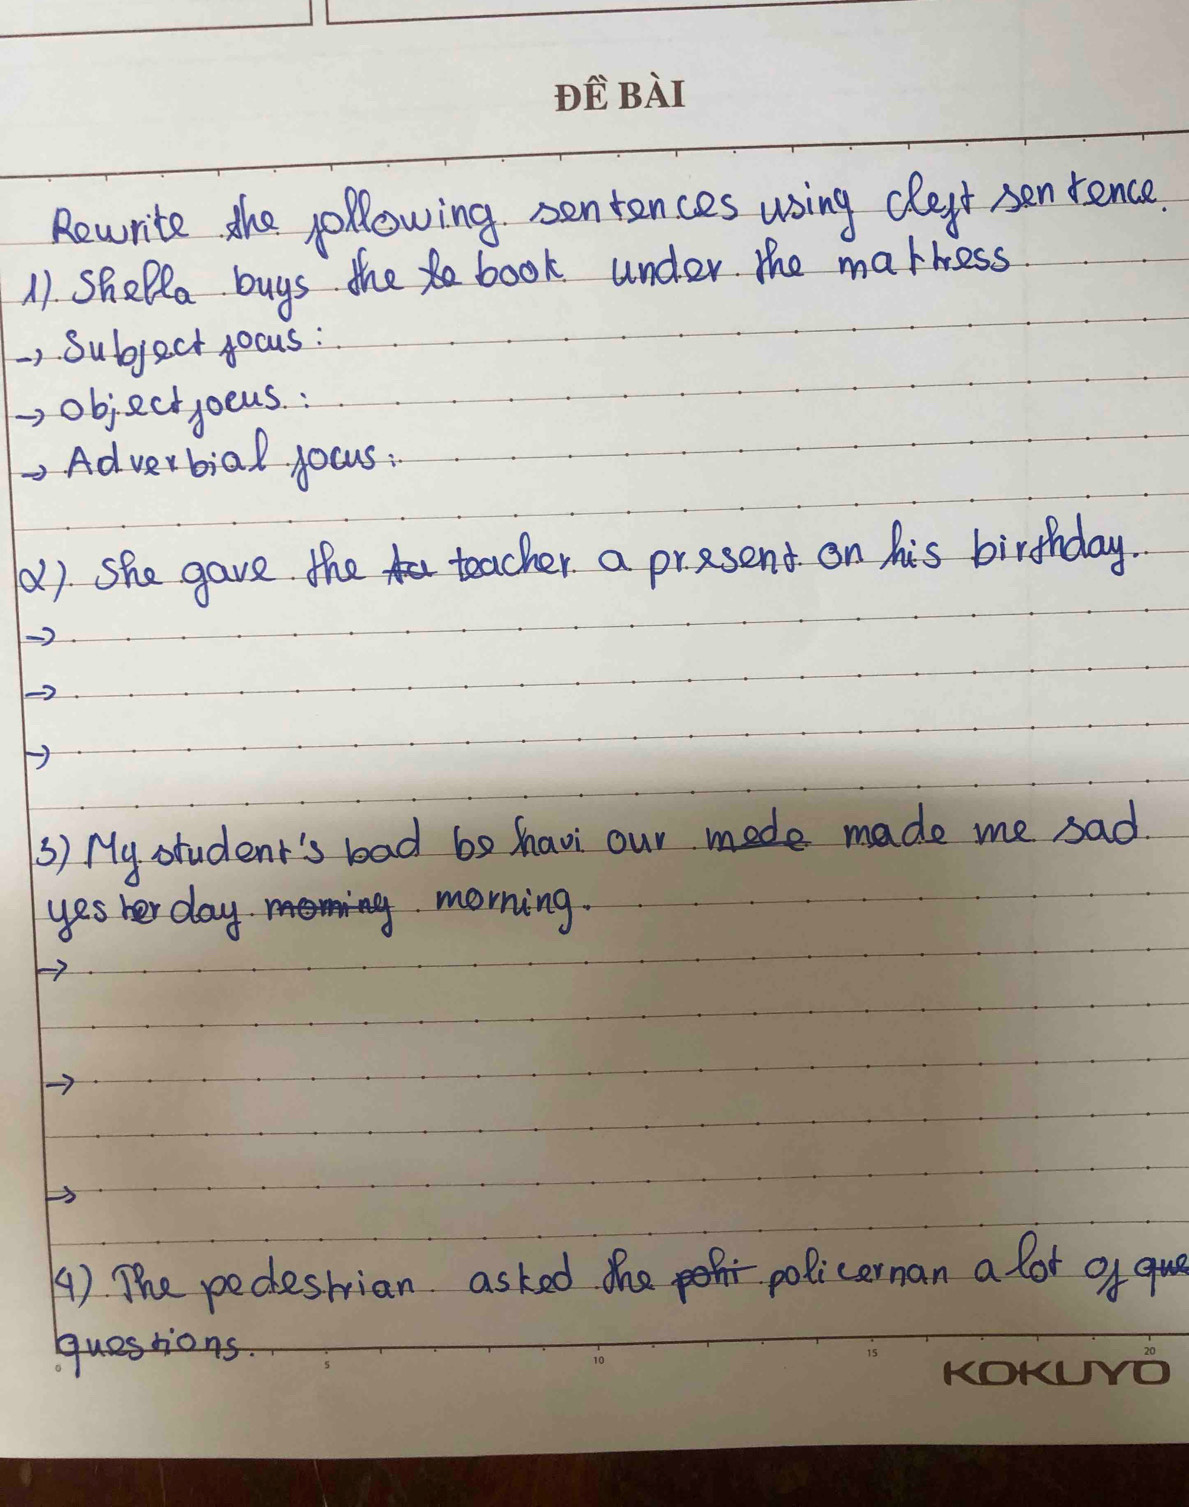 ĐỀ BÀI
Rewrite the following sentences using cleft sentence.
1) Shella buys the book under the mattress
→ Subject focus:
→ Object focus:
→ Adverbial focus:
2) She gave the teacher a present on his birthday.
→
→
→
3) My student's bad behaviour made me sad
yesterday morning.
→
→
→
4) The pedestrian asked the policeman a lot of
questions.
0 5 10 15 20
KOKUYO